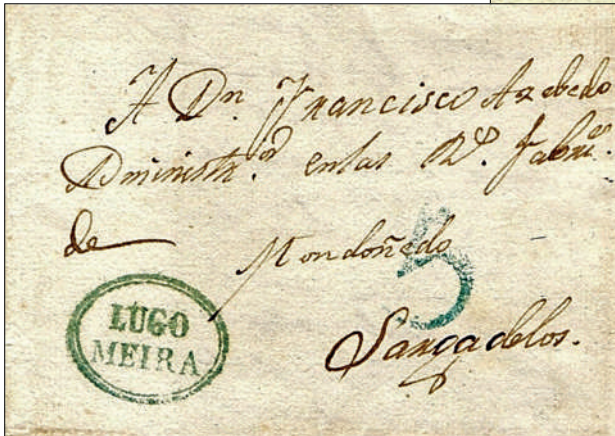 A Dn. Francisco Azebedo
Administr.or en las Rs. Fabric.as
de Mondoñedo
5
Sargadelos.
LUGO
MEIRA